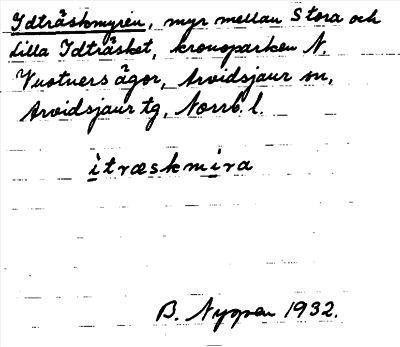 Idträskmyren, myr mellan Stora och
Lilla Idträsket, kronoparken N.
Vuotners ägor, Arvidsjaur sn,
Arvidsjaur tg, Norrb. l.
itræskmira
B. Nygren 1932.